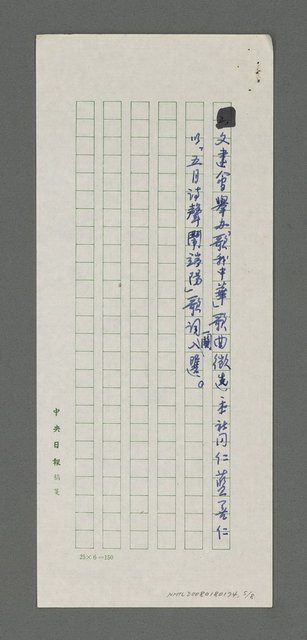 文建會舉辦「歌我中華」歌曲徵選,本社同仁藍善仁
以「五月詩聲鬧端陽」歌詞一闋入選。
中央日報稿箋
25×6=150
NMTL20080180174, 5/8